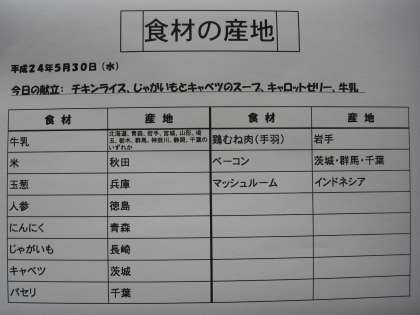 食材の産地
平成24年5月30日（水）
今日の献立： チキンライス、じゃがいもとキャベツのスープ、キャロットゼリー、牛乳
食材 産地 食材 産地
牛乳 北海道、青森、岩手、宮城、山形、埼玉、栃木、群馬、神奈川、静岡、千葉のいずれか 鶏むね肉（手羽） 岩手
米 秋田 ベーコン 茨城・群馬・千葉
玉葱 兵庫 マッシュルーム インドネシア
人参 徳島
にんにく 青森
じゃがいも 長崎
キャベツ 茨城
パセリ 千葉